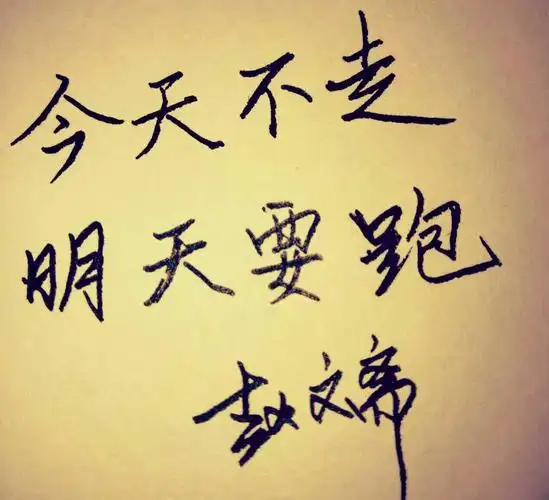 今天不走
明天要跑
赵文